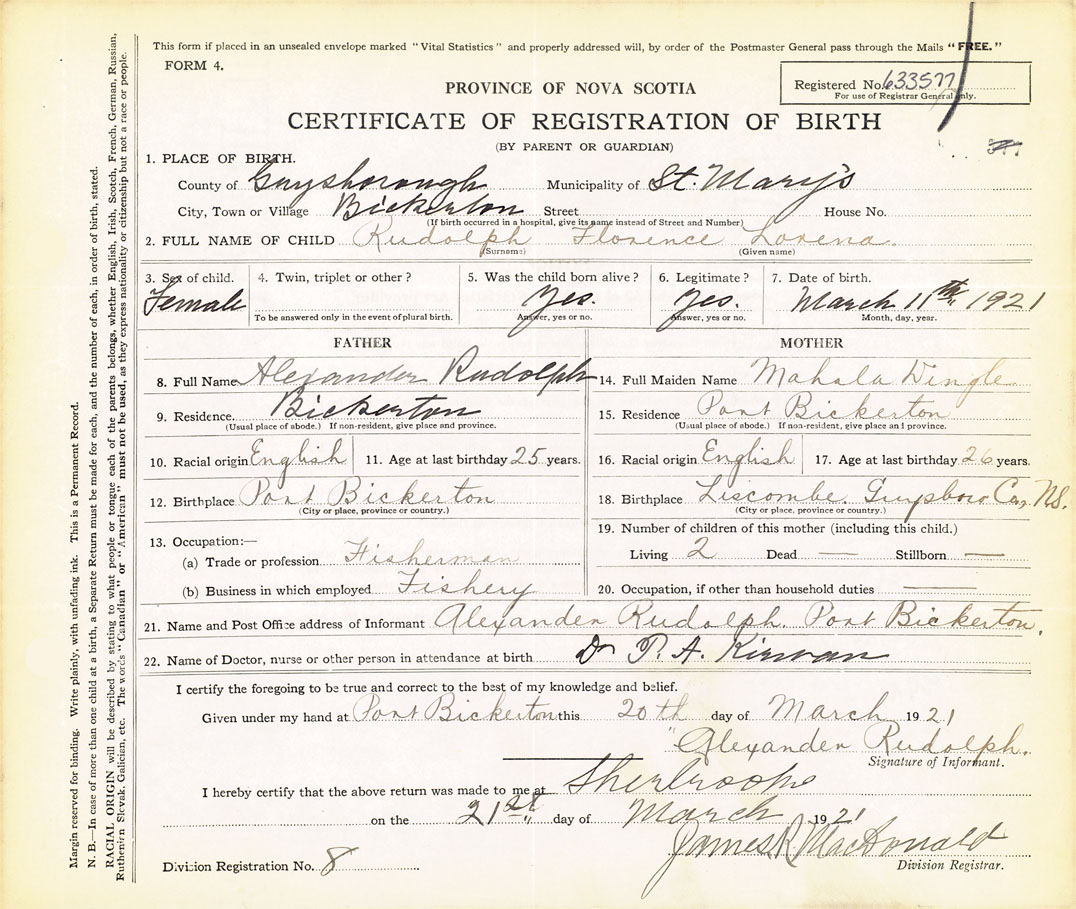 This form if placed in an unsealed envelope marked "Vital Statistics" and properly addressed will, by order of the Postmaster General pass through the Mails "FREE."
FORM 4.
Registered No. 633577
For use of Registrar General only.
PROVINCE OF NOVA SCOTIA
CERTIFICATE OF REGISTRATION OF BIRTH
(BY PARENT OR GUARDIAN)
1. PLACE OF BIRTH.
County of Guysborough Municipality of St. Mary's
City, Town or Village Bickerton Street House No.
(If birth occurred in a hospital, give its name instead of Street and Number)
2. FULL NAME OF CHILD Rudolph Florence Lorena.
(Surname) (Given name)
3. Sex of child. 4. Twin, triplet or other? 5. Was the child born alive? 6. Legitimate? 7. Date of birth.
Female Yes. Yes. March 11th, 1921
To be answered only in the event of plural birth. Answer, yes or no. Answer, yes or no. Month, day, year.
FATHER MOTHER
8. Full Name Alexander Rudolph 14. Full Maiden Name Mahala Dingle
9. Residence. Bickerton 15. Residence Port Bickerton
(Usual place of abode.) If non-resident, give place and province. (Usual place of abode.) If non-resident, give place an l province.
10. Racial origin English 11. Age at last birthday 25 years. 16. Racial origin English 17. Age at last birthday 26 years.
12. Birthplace Port Bickerton 18. Birthplace Liscombe. Guysboro Co., N.S.
(City or place, province or country.) (City or place, province or country.)
13. Occupation:— 19. Number of children of this mother (including this child.)
(a) Trade or profession Fisherman Living 2 Dead — Stillborn —
(b) Business in which employed Fishery 20. Occupation, if other than household duties —
21. Name and Post Office address of Informant Alexander Rudolph. Port Bickerton.
22. Name of Doctor, nurse or other person in attendance at birth Dr P. A. Kirwan
I certify the foregoing to be true and correct to the best of my knowledge and belief.
Given under my hand at Port Bickerton this 20th day of March 1921
"Alexander Rudolph.
Signature of Informant.
I hereby certify that the above return was made to me at Sherbrooke
on the 21st day of March 1921
James R MacDonald
Division Registrar.
Division Registration No. 8
Margin reserved for binding. Write plainly, with unfading ink. This is a Permanent Record.
N. B.—In case of more than one child at a birth, a Separate Return must be made for each, and the number of each, in order of birth, stated.
RACIAL ORIGIN will be described by stating to what people or tongue each of the parents belongs, whether English, Irish, Scotch, French, German, Russian,
Ruthenian Slovak, Galician, etc. The words "Canadian" or "American" must not be used, as they express nationality or citizenship but not a race or people.